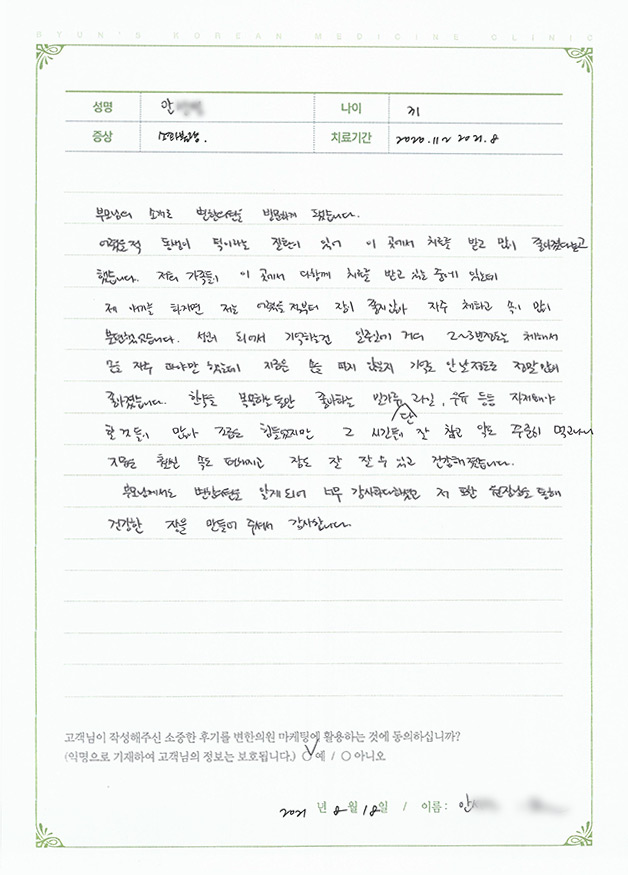 BYUN'S KOREAN MEDICINE CLINIC
성명 안 나이 31
증상 소화불량. 치료기간 2020.11~2021.8
부모님의 소개로 변한의원을 방문하게 됐습니다.
어렸을적 동생이 틱이라는 질환이 있어 이 곳에서 치료를 받고 많이 좋아졌다고
했습니다. 저희 가족들이 이 곳에서 다함께 치료를 받고 있는 중에 있는데
제 얘기를 하자면 저는 어렸을적부터 장이 좋지않아 자주 체하고 속이 많이
불편했었습니다. 성인이 되어서 기억하는건 일주일에 거의 2~3번정도는 체해서
손을 자주 따야만 했는데 지금은 손을 따지 않은지 기억도 안 날정도로 정말 많이
좋아졌습니다. 한약을 복용하는동안 좋아하는 밀가루, 과일, 우유 등등 자제해야
할 것들이 많아 조금은 힘들었지만 그 시간동안 잘 참고 약도 꾸준히 먹고나니
지금은 훨씬 속도 편해지고 잠도 잘 잘 수 있고 건강해졌습니다.
부모님께서도 변한의원을 알게되어 너무 감사하다하셨고 저 또한 원장님을 통해
건강한 장을 만들어 주셔서 감사합니다.
고객님이 작성해주신 소중한 후기를 변한의원 마케팅에 활용하는 것에 동의하십니까?
(익명으로 기재하여 고객님의 정보는 보호됩니다.) ○ 예 / ○ 아니오
2021 년 8 월 18 일 / 이름 : 안